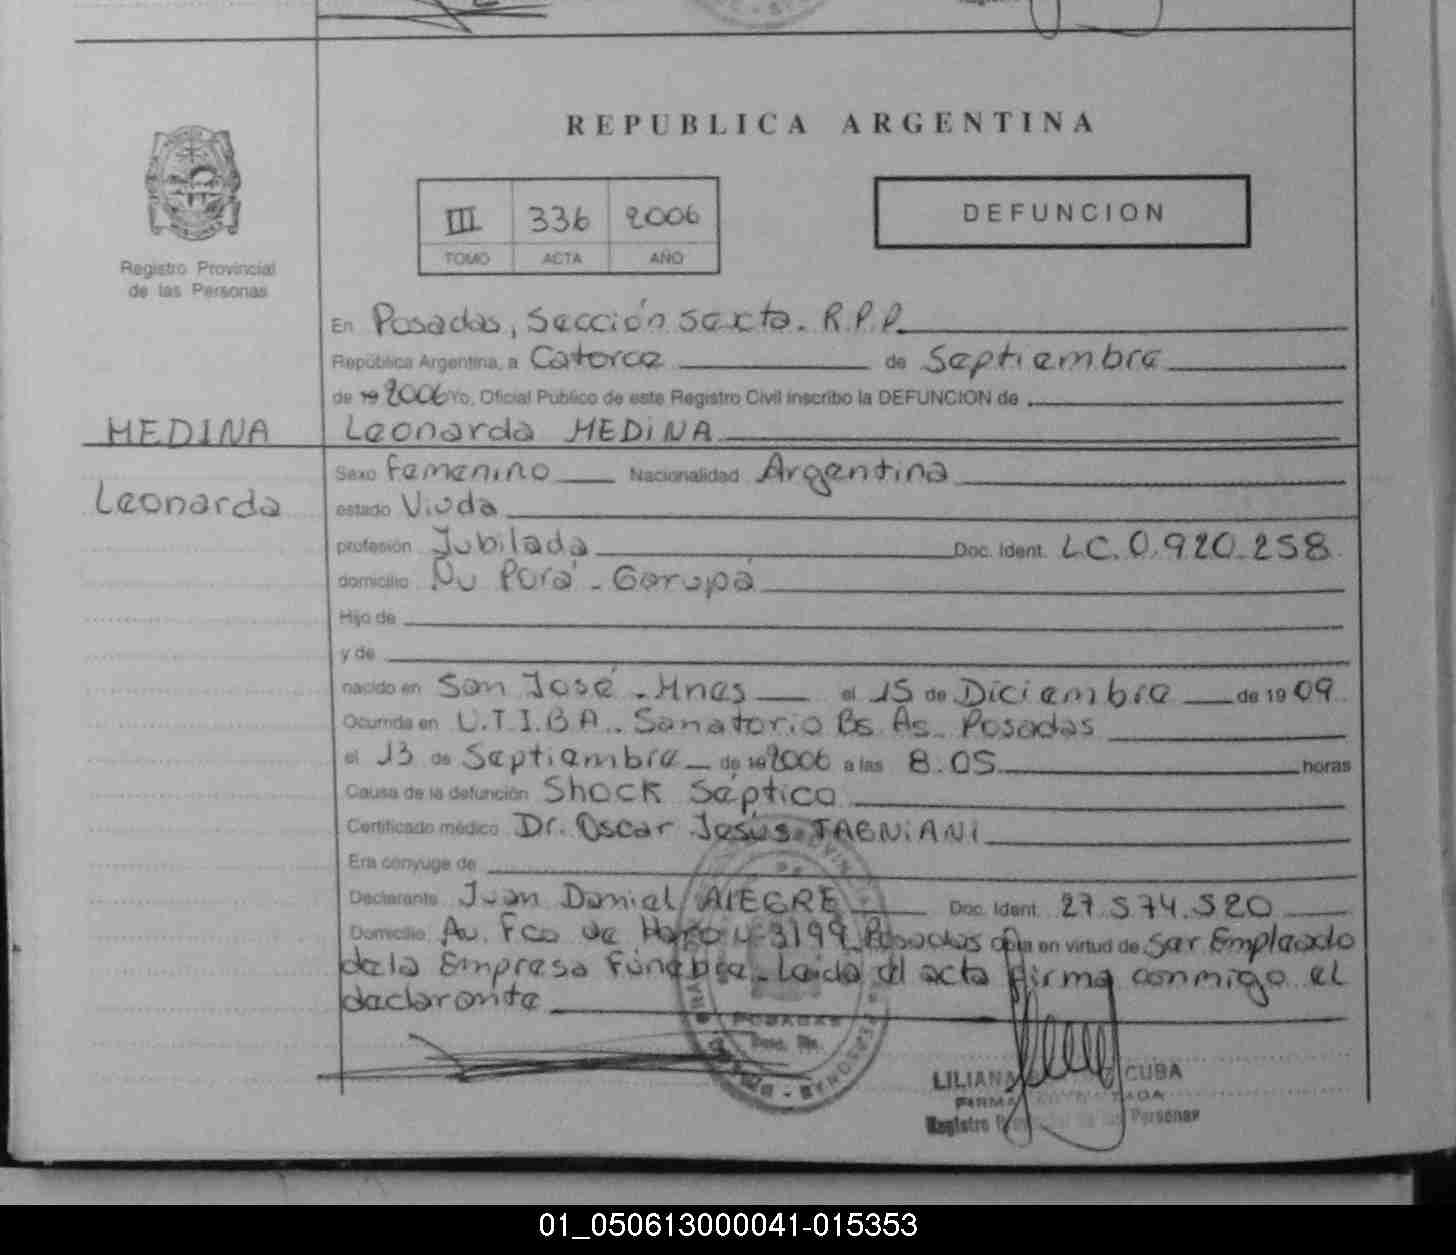 REPUBLICA ARGENTINA
III 336 2006
TOMO ACTA AÑO
DEFUNCION
Registro Provincial
de las Personas
MEDINA
Leonarda
En Posadas, Sección sexta. R.P.P.
República Argentina, a Catorce de Septiembre
de 19 2006 Yo, Oficial Publico de este Registro Civil inscribo la DEFUNCION de
Leonarda MEDINA
Sexo Femenino Nacionalidad Argentina
estado Viuda
profesión Jubilada Doc. Ident. LC. 0.920.258
domicilio Ñu Porá - Garupá
Hijo de
y de
nacido en San José - Mnes el 15 de Diciembre de 19 09
Ocurrida en U.T.I.B.A. Sanatorio Bs. As. Posadas
el 13 de Septiembre de 19 2006 a las 8.05 horas
Causa de la defunción Shock Séptico
Certificado médico Dr. Oscar Jesús
Era conyuge de
Declarante Juan Daniel AlEGRE Doc. Ident. 27.574.520
Domicilio Av. Fco de Haro 3199 Posadas obra en virtud de ser Empleado
de la Empresa Fúnebre. Leida el acta firma conmigo el
declarante
POSADAS
LILIANA CUBA
FIRMA
Registro Personas
01_050613000041-015353